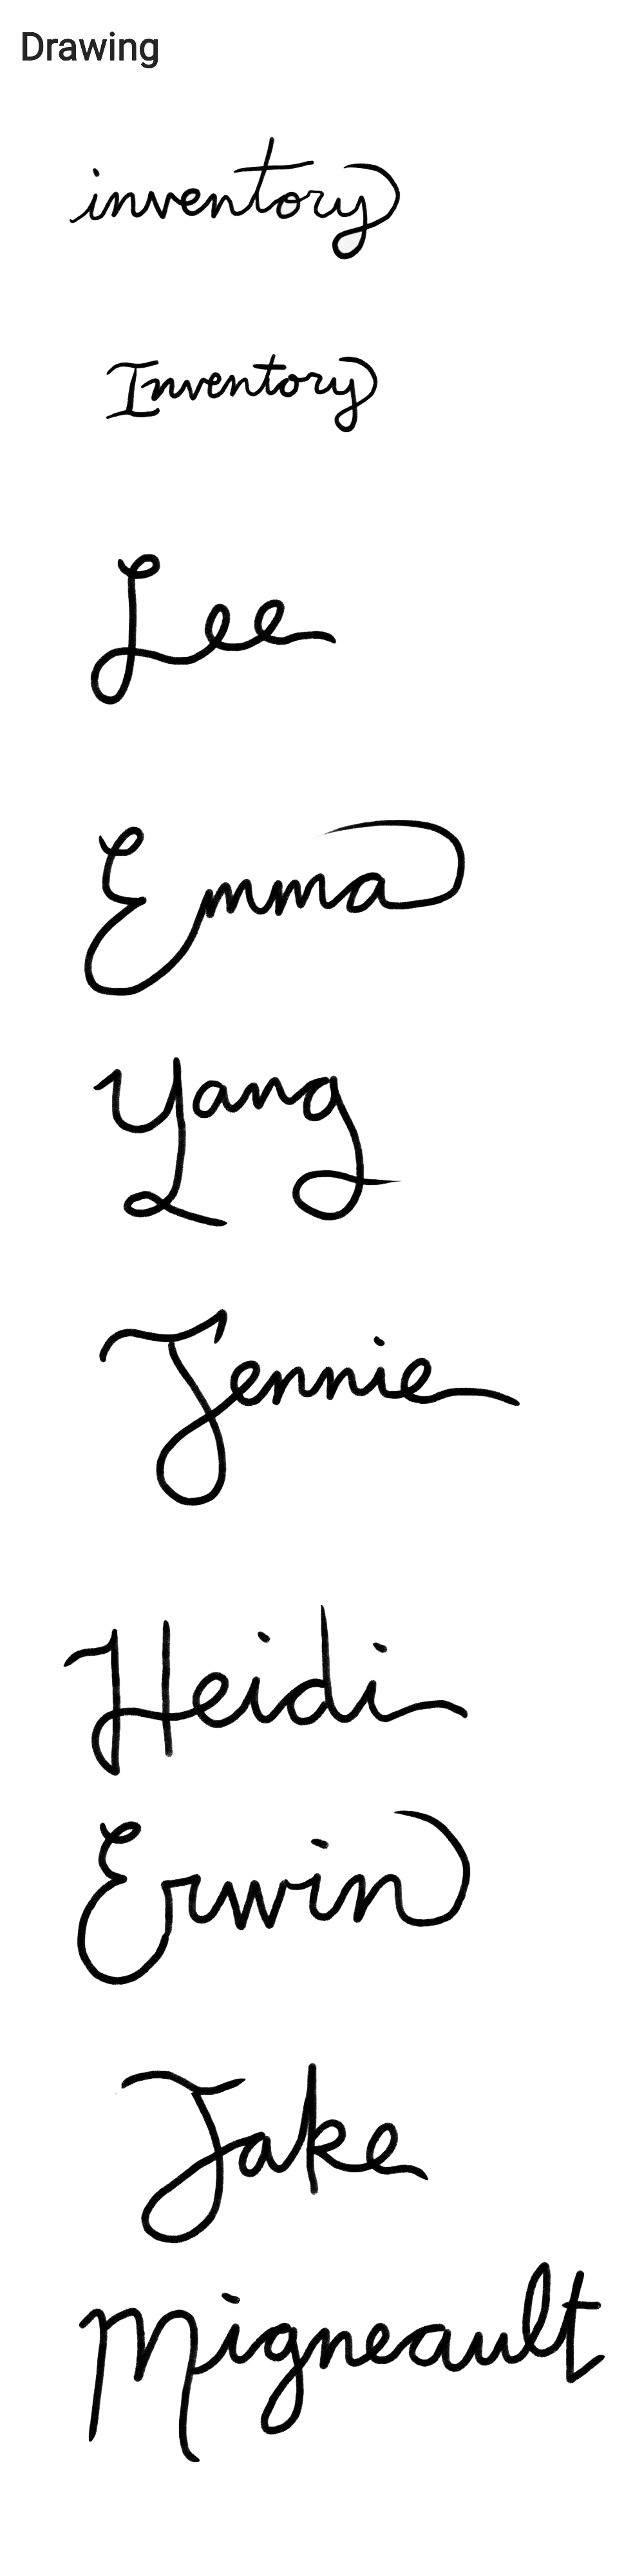 Drawing
inventory
Inventory
Lee
Emma
Yang
Jennie
Heidi
Erwin
Jake
Migneault